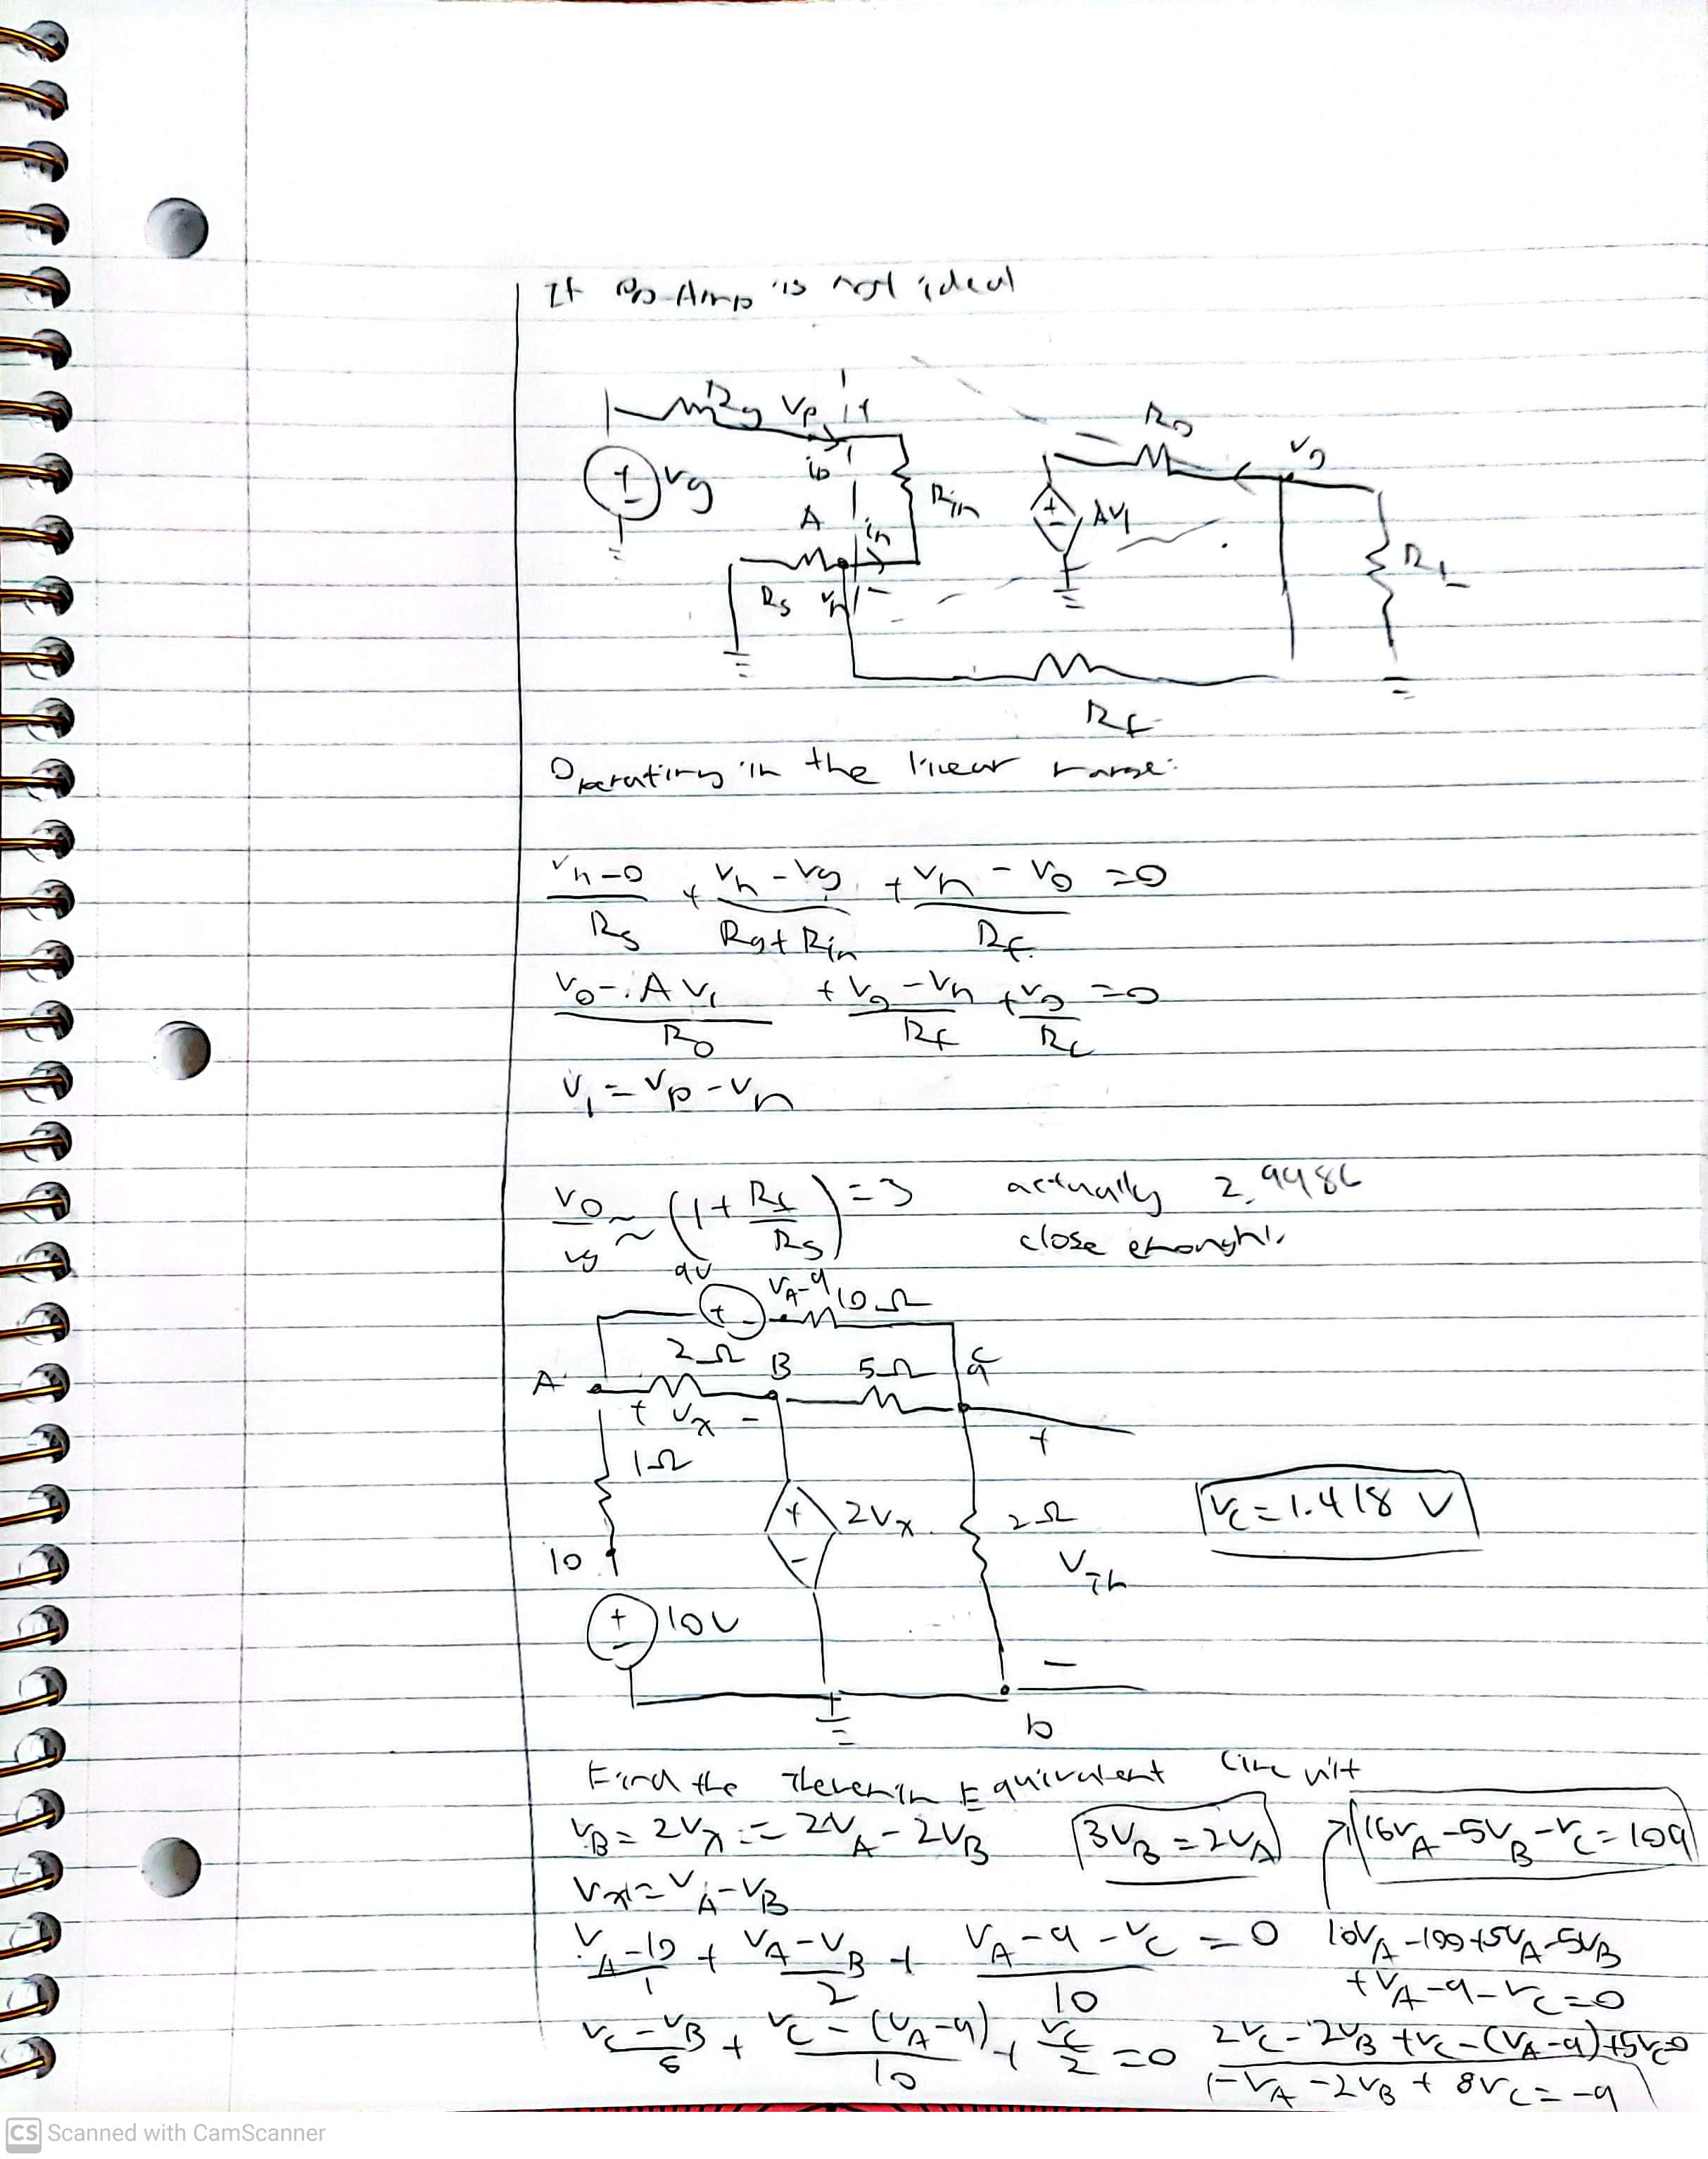 If Op-Amp is not ideal
Rg Vp + Ro Vo
+ - Vg ip Rin + - AV1 RL
A in
Rs Vn -
Rf
Operating in the linear range:
Vn-0/Rs + Vn-Vg/Rg+Rin + Vn-Vo/Rf =0
Vo-AV1/Ro + Vo-Vn/Rf + Vo/RL =0
V1 = Vp-Vn
Vo/Vg ≈ (1+Rf/Rs) =3 actually 2.9986
close enough!
9V VA-9 10Ω
+ -
2Ω B 5Ω C a
A + Vx - +
1Ω
+ - 2Vx 2Ω VC=1.418 V
10 VTh
+ - 10V
-
b
Find the Thevenin Equivalent Circuit
VB = 2Vx = 2VA-2VB 3VB=2VA 16VA-5VB-VC=109
Vx=VA-VB
VA-10/1 + VA-VB/2 + VA-9-VC/10 =0 10VA-100+5VA-5VB
+VA-9-VC=0
VC-VB/5 + VC-(VA-9)/10 + VC/2 =0 2VC-2VB+VC-(VA-9)+5VC=0
-VA-2VB+8VC=-9
CS Scanned with CamScanner